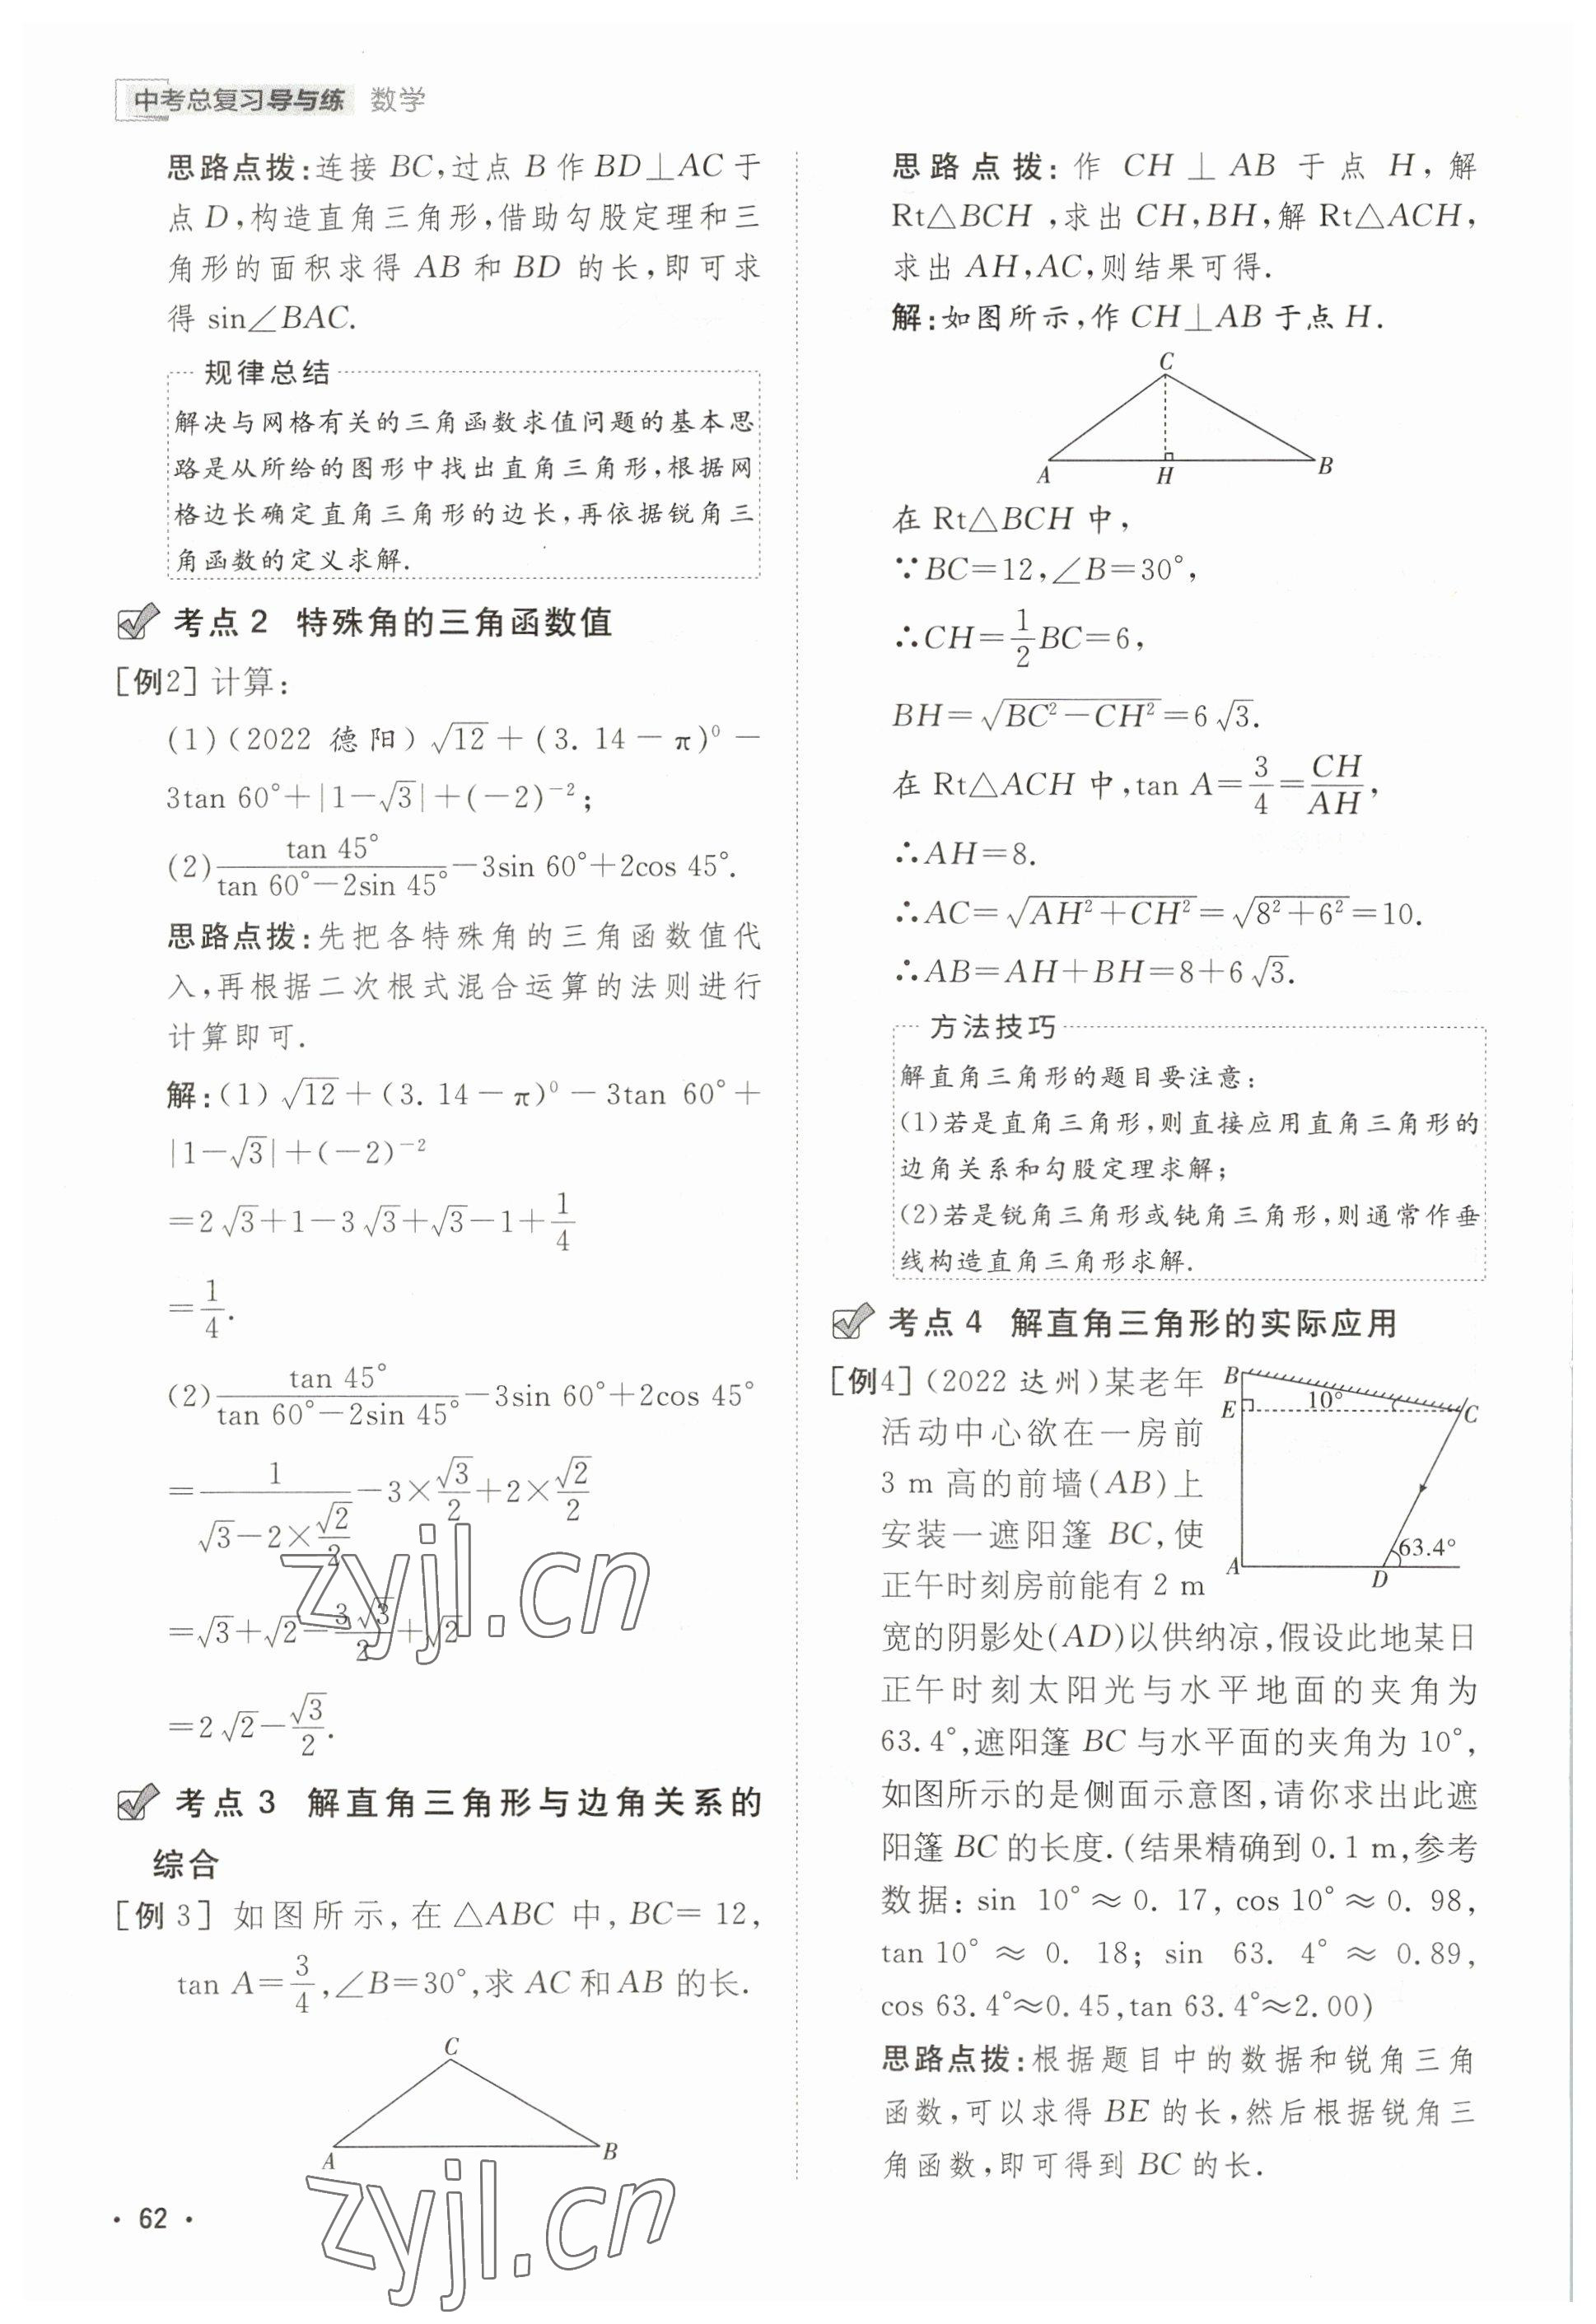 中考总复习导与练 数学
思路点拨:连接 BC,过点 B 作 BD⊥AC 于
点 D,构造直角三角形,借助勾股定理和三
角形的面积求得 AB 和 BD 的长,即可求
得 sin∠BAC.
规律总结
解决与网格有关的三角函数求值问题的基本思
路是从所给的图形中找出直角三角形,根据网
格边长确定直角三角形的边长,再依据锐角三
角函数的定义求解.
考点 2 特殊角的三角函数值
[例2] 计算:
(1)(2022 德阳)√12+(3.14-π)⁰-
3tan 60°+|1-√3|+(-2)⁻²;
(2) tan 45°/(tan 60°-2sin 45°)-3sin 60°+2cos 45°.
思路点拨:先把各特殊角的三角函数值代
入,再根据二次根式混合运算的法则进行
计算即可.
解:(1)√12+(3.14-π)⁰-3tan 60°+
|1-√3|+(-2)⁻²
=2√3+1-3√3+√3-1+1/4
=1/4.
(2) tan 45°/(tan 60°-2sin 45°)-3sin 60°+2cos 45°
=1/(√3-2×√2/2)-3×√3/2+2×√2/2
=√3+√2-3√3/2+√2
=2√2-√3/2.
考点 3 解直角三角形与边角关系的
综合
[例 3] 如图所示,在△ABC 中,BC=12,
tan A=3/4,∠B=30°,求 AC 和 AB 的长.
C
A
B
· 62 ·
思路点拨:作 CH⊥AB 于点 H,解
Rt△BCH,求出 CH,BH,解 Rt△ACH,
求出 AH,AC,则结果可得.
解:如图所示,作 CH⊥AB 于点 H.
C
A
H
B
在 Rt△BCH 中,
∵BC=12,∠B=30°,
∴CH=1/2BC=6,
BH=√(BC²-CH²)=6√3.
在 Rt△ACH 中,tan A=3/4=CH/AH,
∴AH=8.
∴AC=√(AH²+CH²)=√(8²+6²)=10.
∴AB=AH+BH=8+6√3.
方法技巧
解直角三角形的题目要注意:
(1)若是直角三角形,则直接应用直角三角形的
边角关系和勾股定理求解;
(2)若是锐角三角形或钝角三角形,则通常作垂
线构造直角三角形求解.
考点 4 解直角三角形的实际应用
[例4](2022 达州)某老年
活动中心欲在一房前
3 m 高的前墙(AB)上
安装一遮阳篷 BC,使
正午时刻房前能有 2 m
B
E
10°
C
63.4°
A
D
宽的阴影处(AD)以供纳凉,假设此地某日
正午时刻太阳光与水平地面的夹角为
63.4°,遮阳篷 BC 与水平面的夹角为 10°,
如图所示的是侧面示意图,请你求出此遮
阳篷 BC 的长度.(结果精确到 0.1 m,参考
数据:sin 10°≈0.17,cos 10°≈0.98,
tan 10°≈0.18;sin 63.4°≈0.89,
cos 63.4°≈0.45,tan 63.4°≈2.00)
思路点拨:根据题目中的数据和锐角三角
函数,可以求得 BE 的长,然后根据锐角三
角函数,即可得到 BC 的长.
zyjl.cn
zyjl.cn